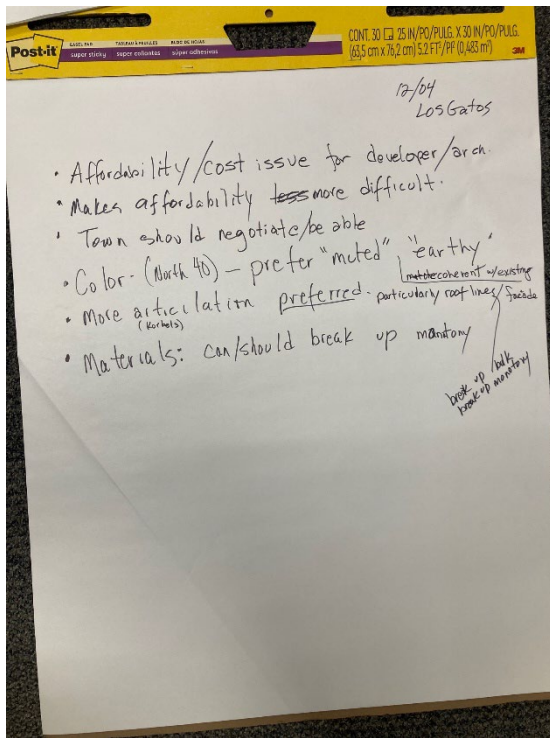 Post-it
EASEL PAD TABLEAU À FEUILLES BLOC DE HOJAS
super sticky super collantes súper adhesivas
CONT. 30 25 IN/PO/PULG. X 30 IN/PO/PULG.
(63,5 cm x 76,2 cm) 5.2 FT²/PI² (0,483 m²) 3M
12/04
Los Gatos
• Affordability/cost issue for developer/arch.
• Makes affordability less more difficult.
• Town should negotiate/be able
• Color - (North 40) – prefer "muted" "earthy"
coherent w/existing
• More articulation preferred - particularly roof lines/facade
(Korbels)
• Materials: can/should break up montony
break up bulk
break up monotony